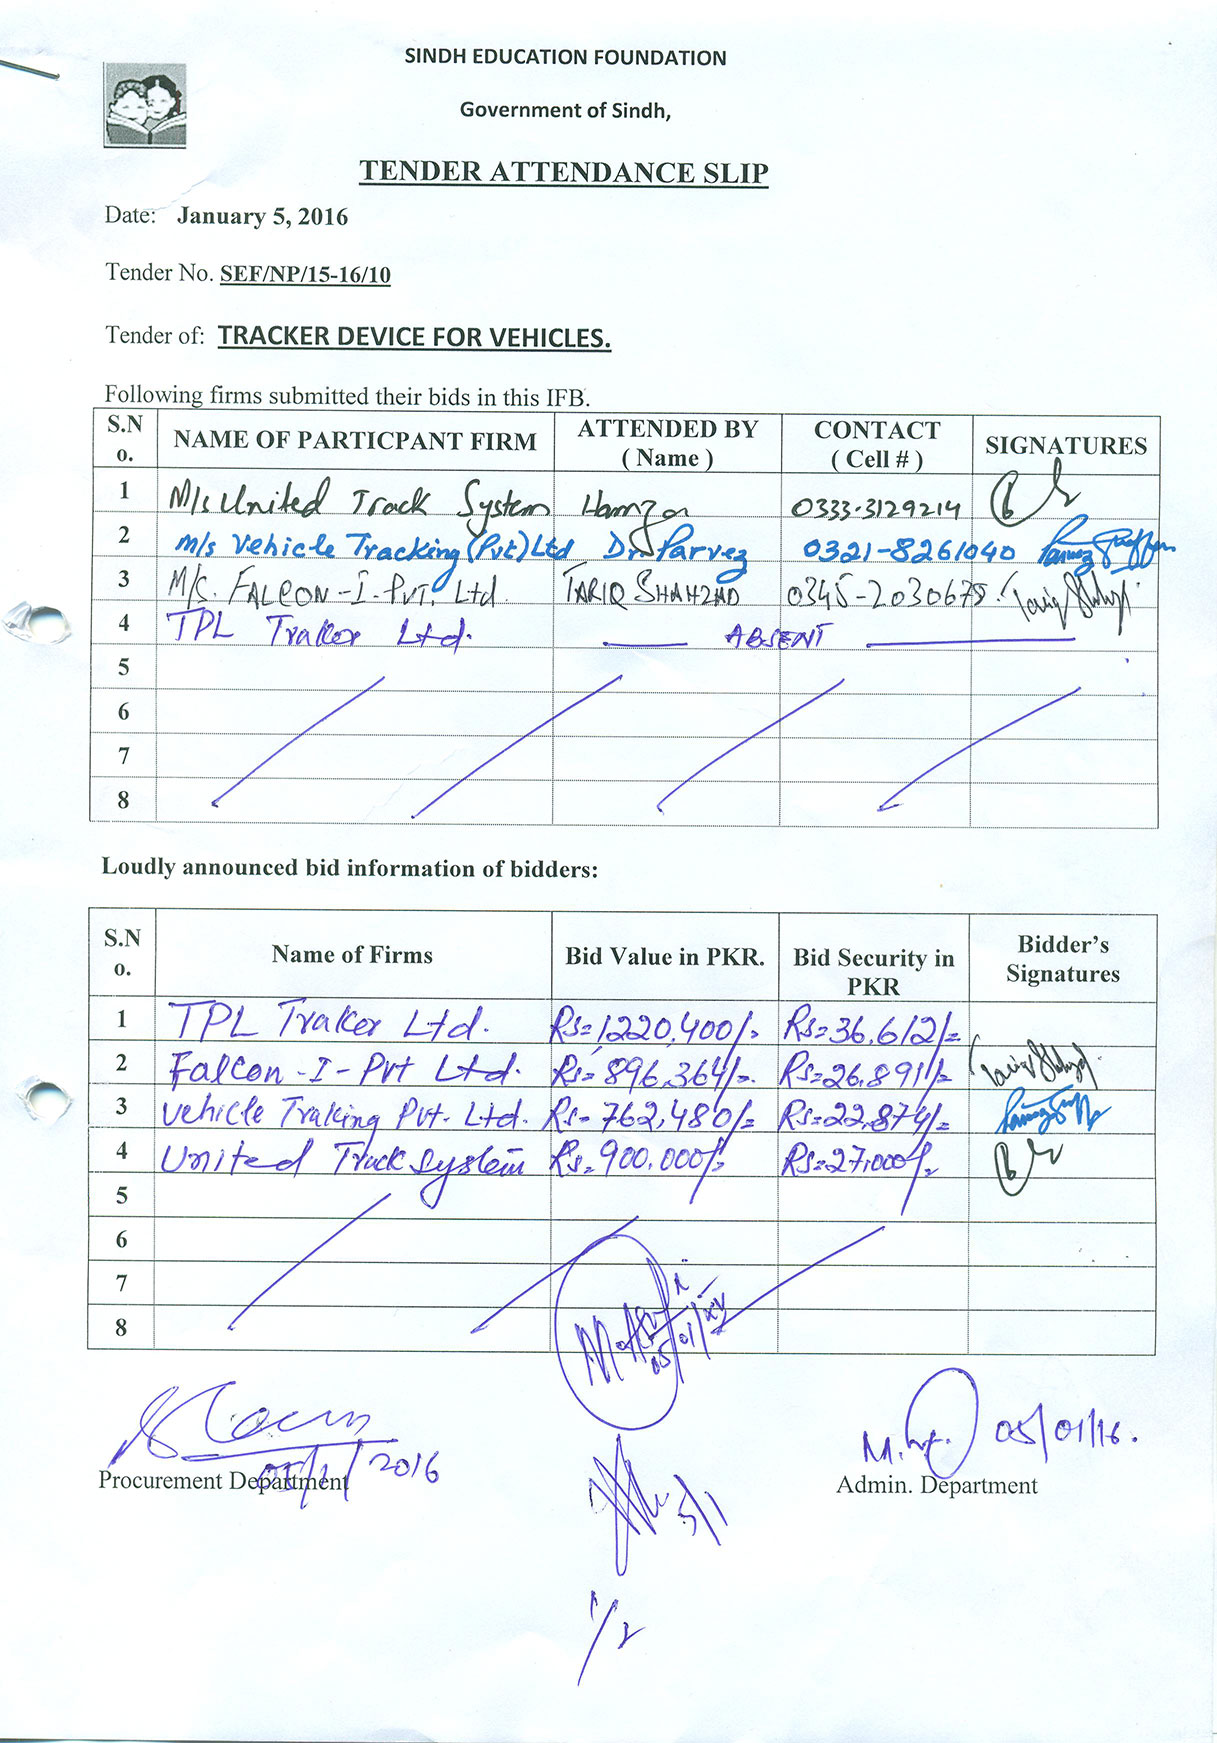 SINDH EDUCATION FOUNDATION
Government of Sindh,
TENDER ATTENDANCE SLIP
Date: January 5, 2016
Tender No. SEF/NP/15-16/10
Tender of: TRACKER DEVICE FOR VEHICLES.
Following firms submitted their bids in this IFB.
S.No. NAME OF PARTICPANT FIRM ATTENDED BY ( Name ) CONTACT ( Cell # ) SIGNATURES
1 M/s United Track System Hamza 0333-3129214
2 M/s Vehicle Tracking (Pvt) Ltd Dr. Parvez 0321-8261040
3 M/s. FALCON-I-PVT. Ltd. TARIQ SHAHZAD 0345-2030675
4 TPL Traker Ltd. ABSENT
5
6
7
8
Loudly announced bid information of bidders:
S.No. Name of Firms Bid Value in PKR. Bid Security in PKR Bidder's Signatures
1 TPL Traker Ltd. Rs=1220,400/= Rs=36,612/=
2 Falcon-I-Pvt Ltd. Rs=896,364/=. Rs=26,891/=
3 Vehicle Traking Pvt. Ltd. Rs=762,480/= Rs=22,874/=
4 United Track System Rs=900,000/= Rs=27,000/=
5
6
7
8
05/1/2016
05/01/16.
Procurement Department
Admin. Department
5/1
1/2